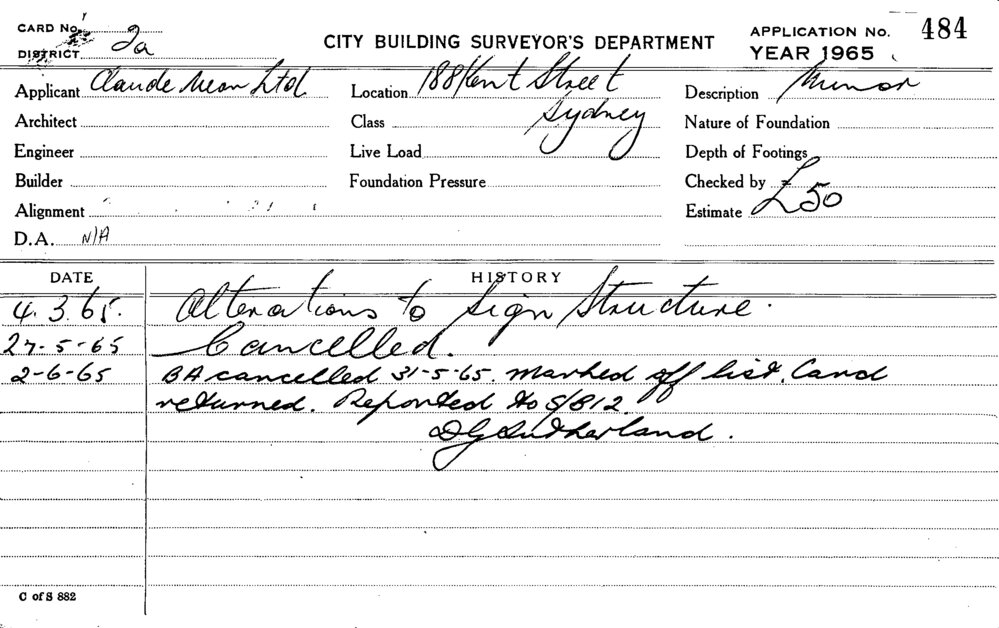 CARD No.
DISTRICT 2a
CITY BUILDING SURVEYOR'S DEPARTMENT
APPLICATION No. 484
YEAR 1965
Applicant Claude Neon Ltd.
Location 188 Kent Street
Sydney
Description Minor
Architect
Class
Nature of Foundation
Engineer
Live Load
Depth of Footings
Builder
Foundation Pressure
Checked by
Alignment
Estimate £50
D.A. N/A
DATE
HISTORY
4.3.65. Alterations to Sign Structure.
27-5-65 Cancelled.
2-6-65 BA cancelled 31-5-65. Marked off list. Card
returned. Reported to S/B12.
DG Sutherland.
C of S 882